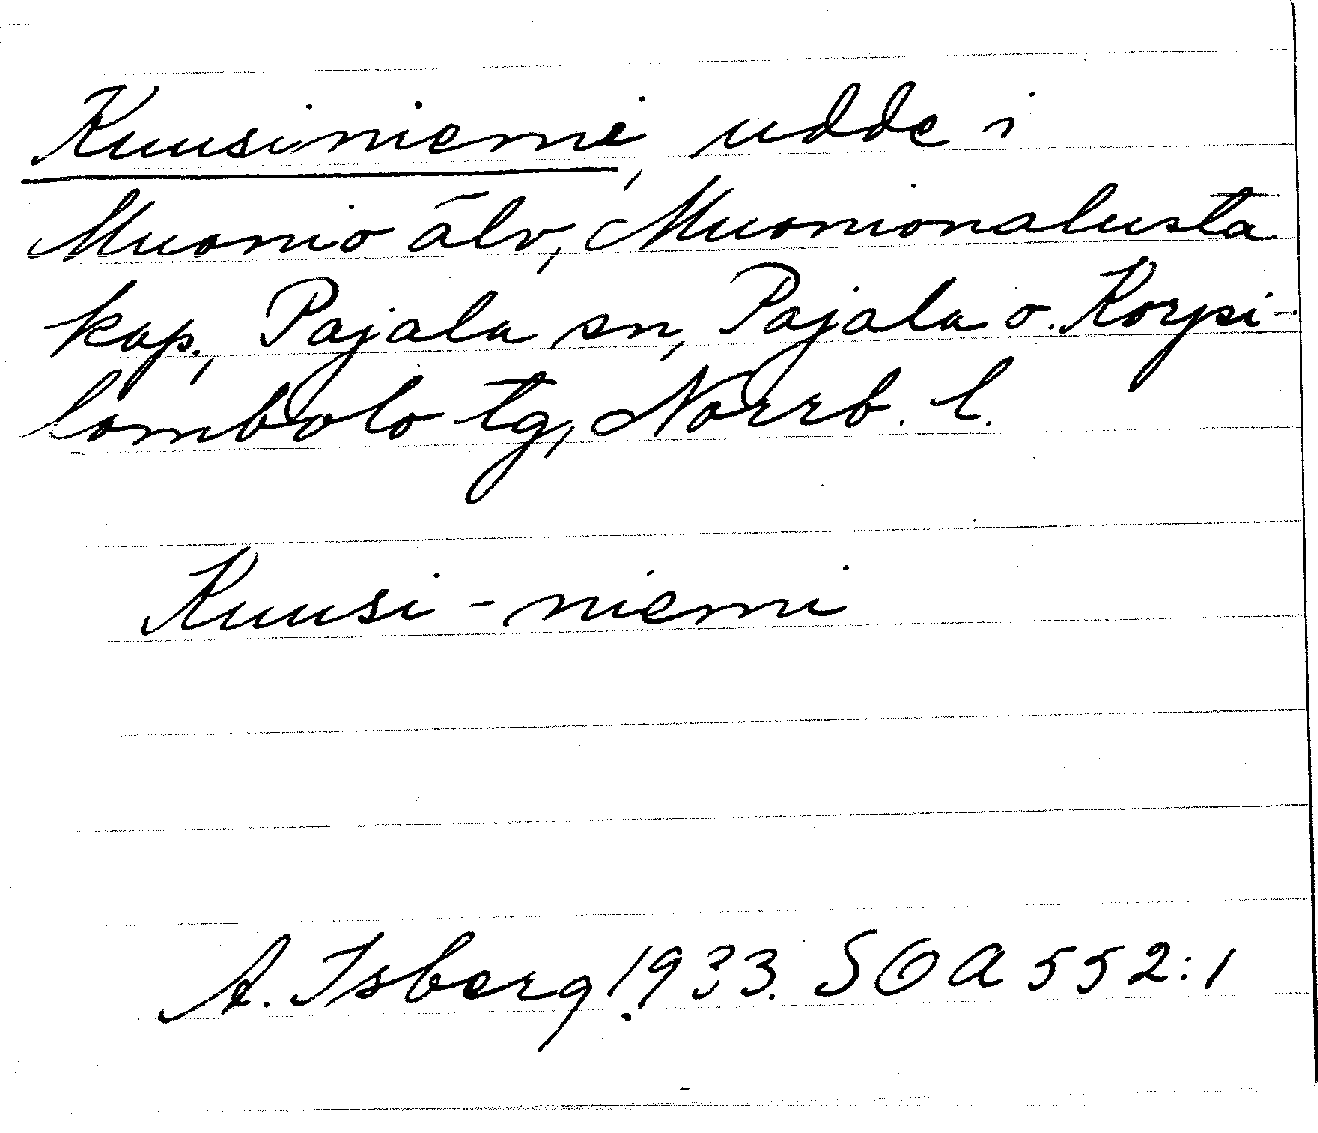 Kuusiniemi, udde i
Muonio älv, Muonionalusta
kap., Pajala sn, Pajala o. Korpi-
lombolo tg, Norrb. l.
Kuusi - niemi
A. Isberg 1933. SOA 552:1